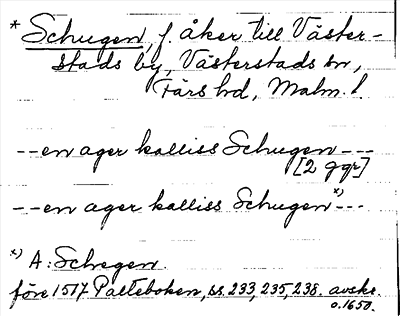 * Schugen, f. åker till Väster-
stads by, Västerstads sn,
Färs hd, Malm. l.
--en ager kalliss Schugen---
[2 ggr]
--en ager kalliss Schugen*)---
*) A: Schegen.
före 1517. Palteboken, ss. 233, 235, 238. avskr.
o. 1650.